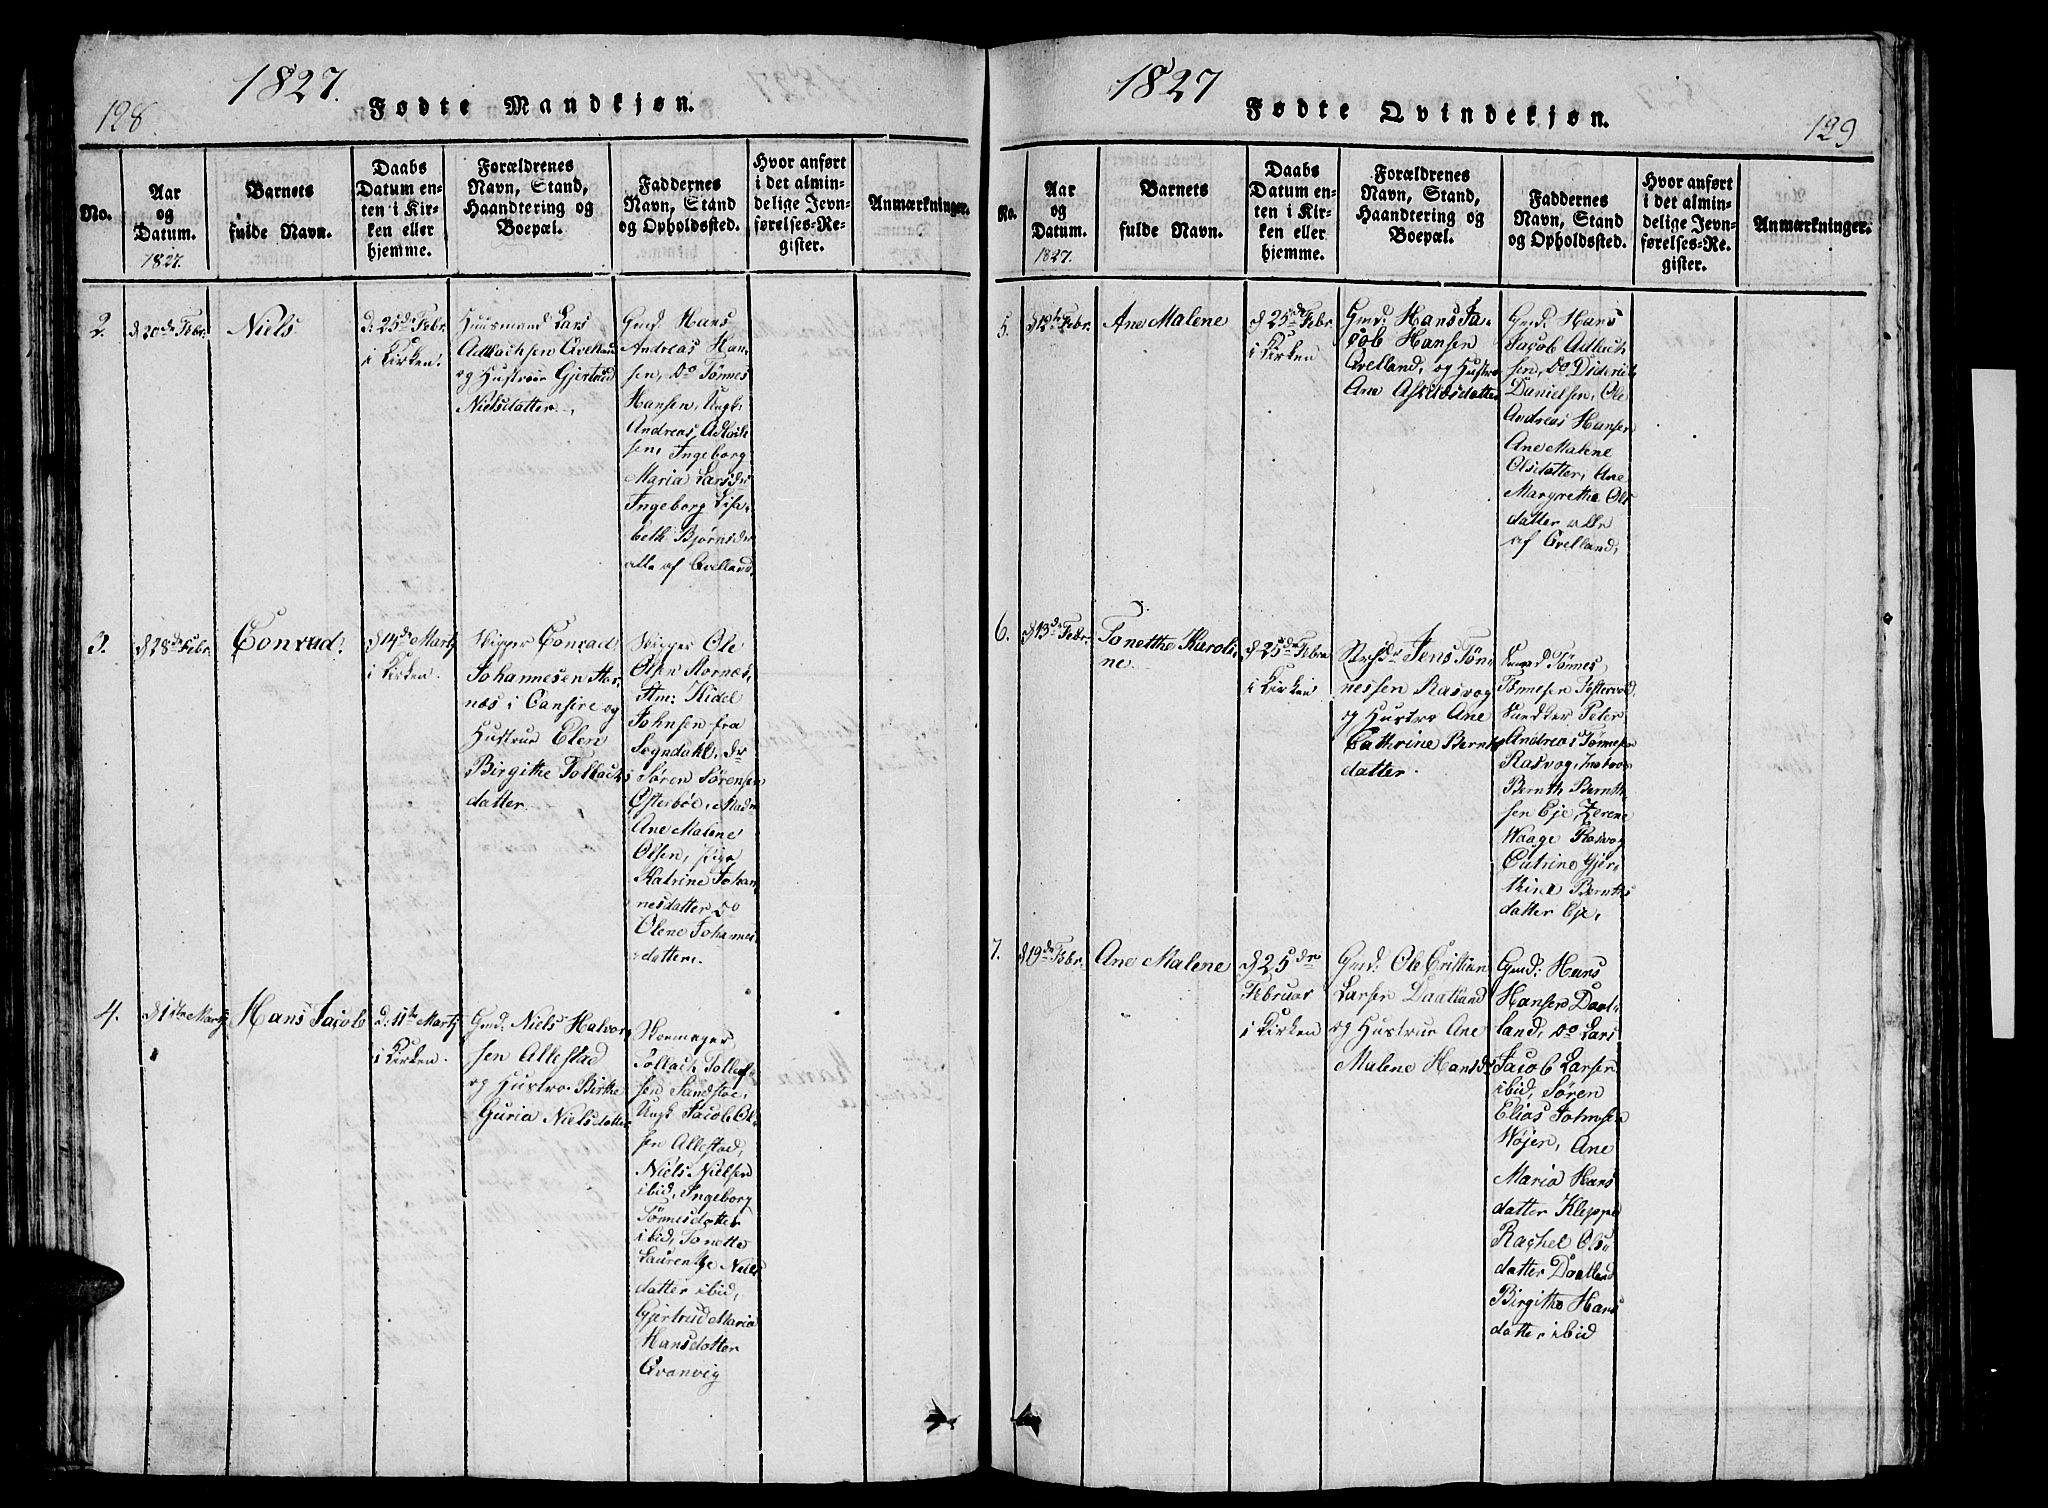 128
1827.
Fødte Mandkjøn.
No.
Aar
og
Datum.
1827.
Barnets
fulde Navn.
Daabs
Datum en-
ten i Kir-
ken eller
hjemme.
Forældrenes
Navn, Stand,
Haandtering og
Boepæl.
Faddernes
Navn, Stand
og Opholdssted.
Hvor anført
i det almin-
delige Jevn-
førelses-Re-
gister.
Anmærkninger.
2.
d 20de Febr.
Niels
d. 25de Febr.
i Kirken.
Huusmand Lars
Adlachsen Qvelland
og Hustrue Gjertrud
Nielsdatter.
Gmd. Hans
Andreas Han-
sen, do Tønnes
Hansen, Ungk.
Andreas Adlach-
sen, Ingeborg
Maria Larsdr
Ingeborg Lisa-
beth Bjørnsdr
alle af Qvelland.
3.
d 28de Febr.
Conrad.
d 14de Martj
i Kirken.
Skipper Conrad
Johannesen Stor-
næs i Eansire og
Hustrue Elen
Birgithe Tollachs
datter.
Skipper Ole
Olsen Stornæs,
Stm: Kidel
Johnsen fra
Sogndahl, dr
Søren Sørensen
Østerbøe, Mad
Ane Malene
Olsen, Pige
Katrine Johan-
nesdatter do
Olene Johannes-
datter.
4.
d 1ste Martj
Hans Jacob
d. 11te Martj
i Kirken.
Gmd. Niels Halvor-
sen Allestad
og Hustro Birthe
Guria Nielsdatter
Skomager
Tollach Tollef-
sen Sandstøe,
Ungk Jacob Ol-
sen Allestad,
Niels Nielsen
ibid, Ingeborg
Tønnesdatter
ibid, Tonette
Laurentze Niels
datter ibid,
Gjertrud Maria
Hansdatter
Qvanvig
1827
Fødte Qvindekjøn.
129
No.
Aar
og
Datum.
1827.
Barnets
fulde Navn.
Daabs
Datum en-
ten i Kir-
ken eller
hjemme.
Forældrenes
Navn, Stand,
Haandtering og
Boepæl.
Faddernes
Navn, Stand
og Opholdssted.
Hvor anført
i det almin-
delige Jevn-
førelses-Re-
gister.
Anmærkninger.
5.
d 12te Febr.
Ane Malene
d 25de Febr
i Kirken
Gmd: Hans Ja-
cob Hansen
Qvelland, og Hustro
Ane Aslaksdatter
Gmd: Hans
Jacob Adlach-
sen, do Diderich
Danielsen, Ole
Andreas Hansen
Ane Malene
Olsdatter, Ane
Margrethe Ols
datter alle
af Qvelland,
6.
d 13de Febr.
Tonetthe Karoli-
ne.
d 25de Febr
i Kirken
Jens Tøn-
nessen Rasvog
og Hustro Ane
Cathrine Bernts
datter.
Tønnes
Tønnesen Fostervold
Peter
Andreas Tønnesen
Rasvog,
Bernth Bernth
sen Eje, Zerene
Waage Rasvog
Catrine Gjer-
thine Bernths
datter Eje,
7.
d 19de Febr.
Ane Malene
d 25de
Februar
i Kirken
Gmd: Ole Cristian
Larsen Daatland
og Hustrue Ane
Malene Hansdr
Gmd: Hans
Hansen Daat-
land, do Lars
Jacob Larsen
ibid, Søren
Elias Johnsen
Wøjen, Ane
Maria Hans
datter Kleppe
Rachel Ols-
datter Daatland
Birgitha Hans
datter ibid